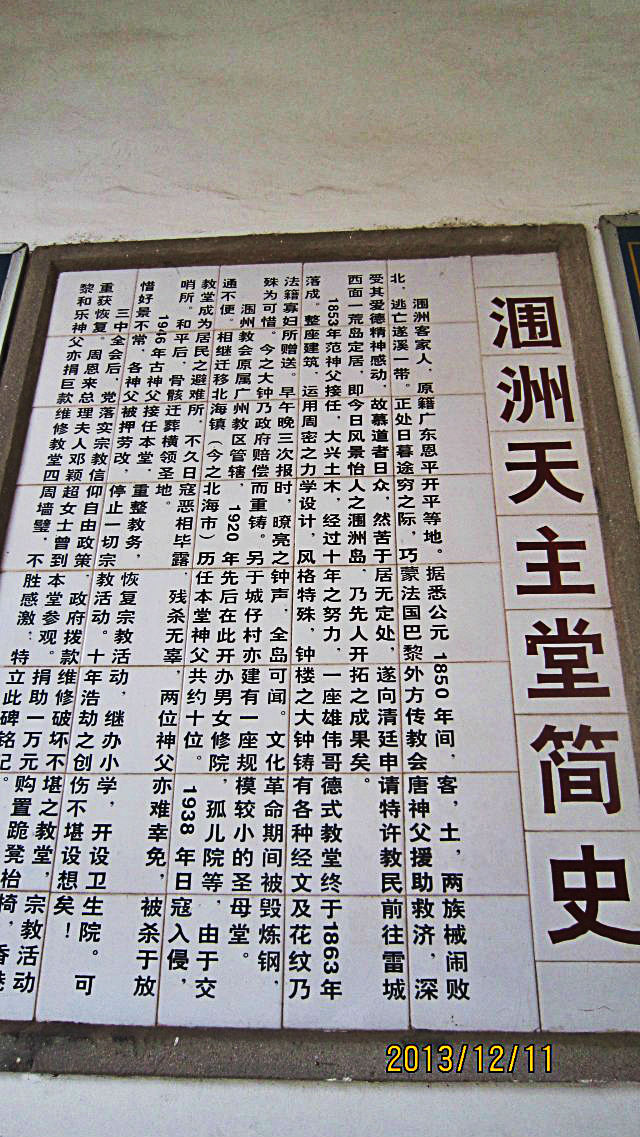 涠洲天主堂简史
涠洲客家人，原籍广东恩平开平等地。据悉公元1850年间，客，土，两族械闹败
北，逃亡遂溪一带。正处日暮途穷之际，巧蒙法国巴黎外方传教会唐神父援助救济，深
受其爱德精神感动，故慕道者日众，然苦于居无定处，遂向清廷申请特许教民前往雷城
西面一荒岛定居，即今日风景怡人之涠洲岛，乃先人开拓之成果矣。
1853年范神父接任，大兴土木，经过十年之努力，一座雄伟哥德式教堂终于1863年
落成。整座建筑，运用周密之力学设计，风格特殊，钟楼之大钟铸有各种经文及花纹乃
法籍寡妇所赠送。早午晚三次报时，嘹亮之钟声，全岛可闻。文化革命期间被毁炼钢，
殊为可惜。今之大钟乃政府赔偿而重铸。另于城仔村亦建有一座规模较小的圣母堂。
涠州教会原属广州教区管辖，1920年先后在此开办男女修院，孤儿院等，由于交
通不便。相继迁移北海镇（今之北海市）历任本堂神父共约十位。1938年日寇入侵，
教堂成为居民之避难所，不久日寇恶相毕露，残杀无辜，两位神父亦难幸免，被杀于放
哨所。和平后，骨骸迁葬横领圣地。
1946年古神父接任本堂，重整教务，恢复宗教活动，继办小学，开设卫生院。可
惜好景不常，各神父被押劳改，停止一切宗教活动。十年浩劫之创伤不堪设想矣！
三中全会后，党落实宗教信仰自由政策，政府拨款维修破坏不堪之教堂，宗教活动
重获恢复。周恩来总理夫人邓颖超女士曾到本堂参观。捐助一万元购置跪凳枱椅，香港
黎和乐神父亦捐巨款维修教堂四周墙璧，不胜感激，特立此碑铭记。
2013/12/11